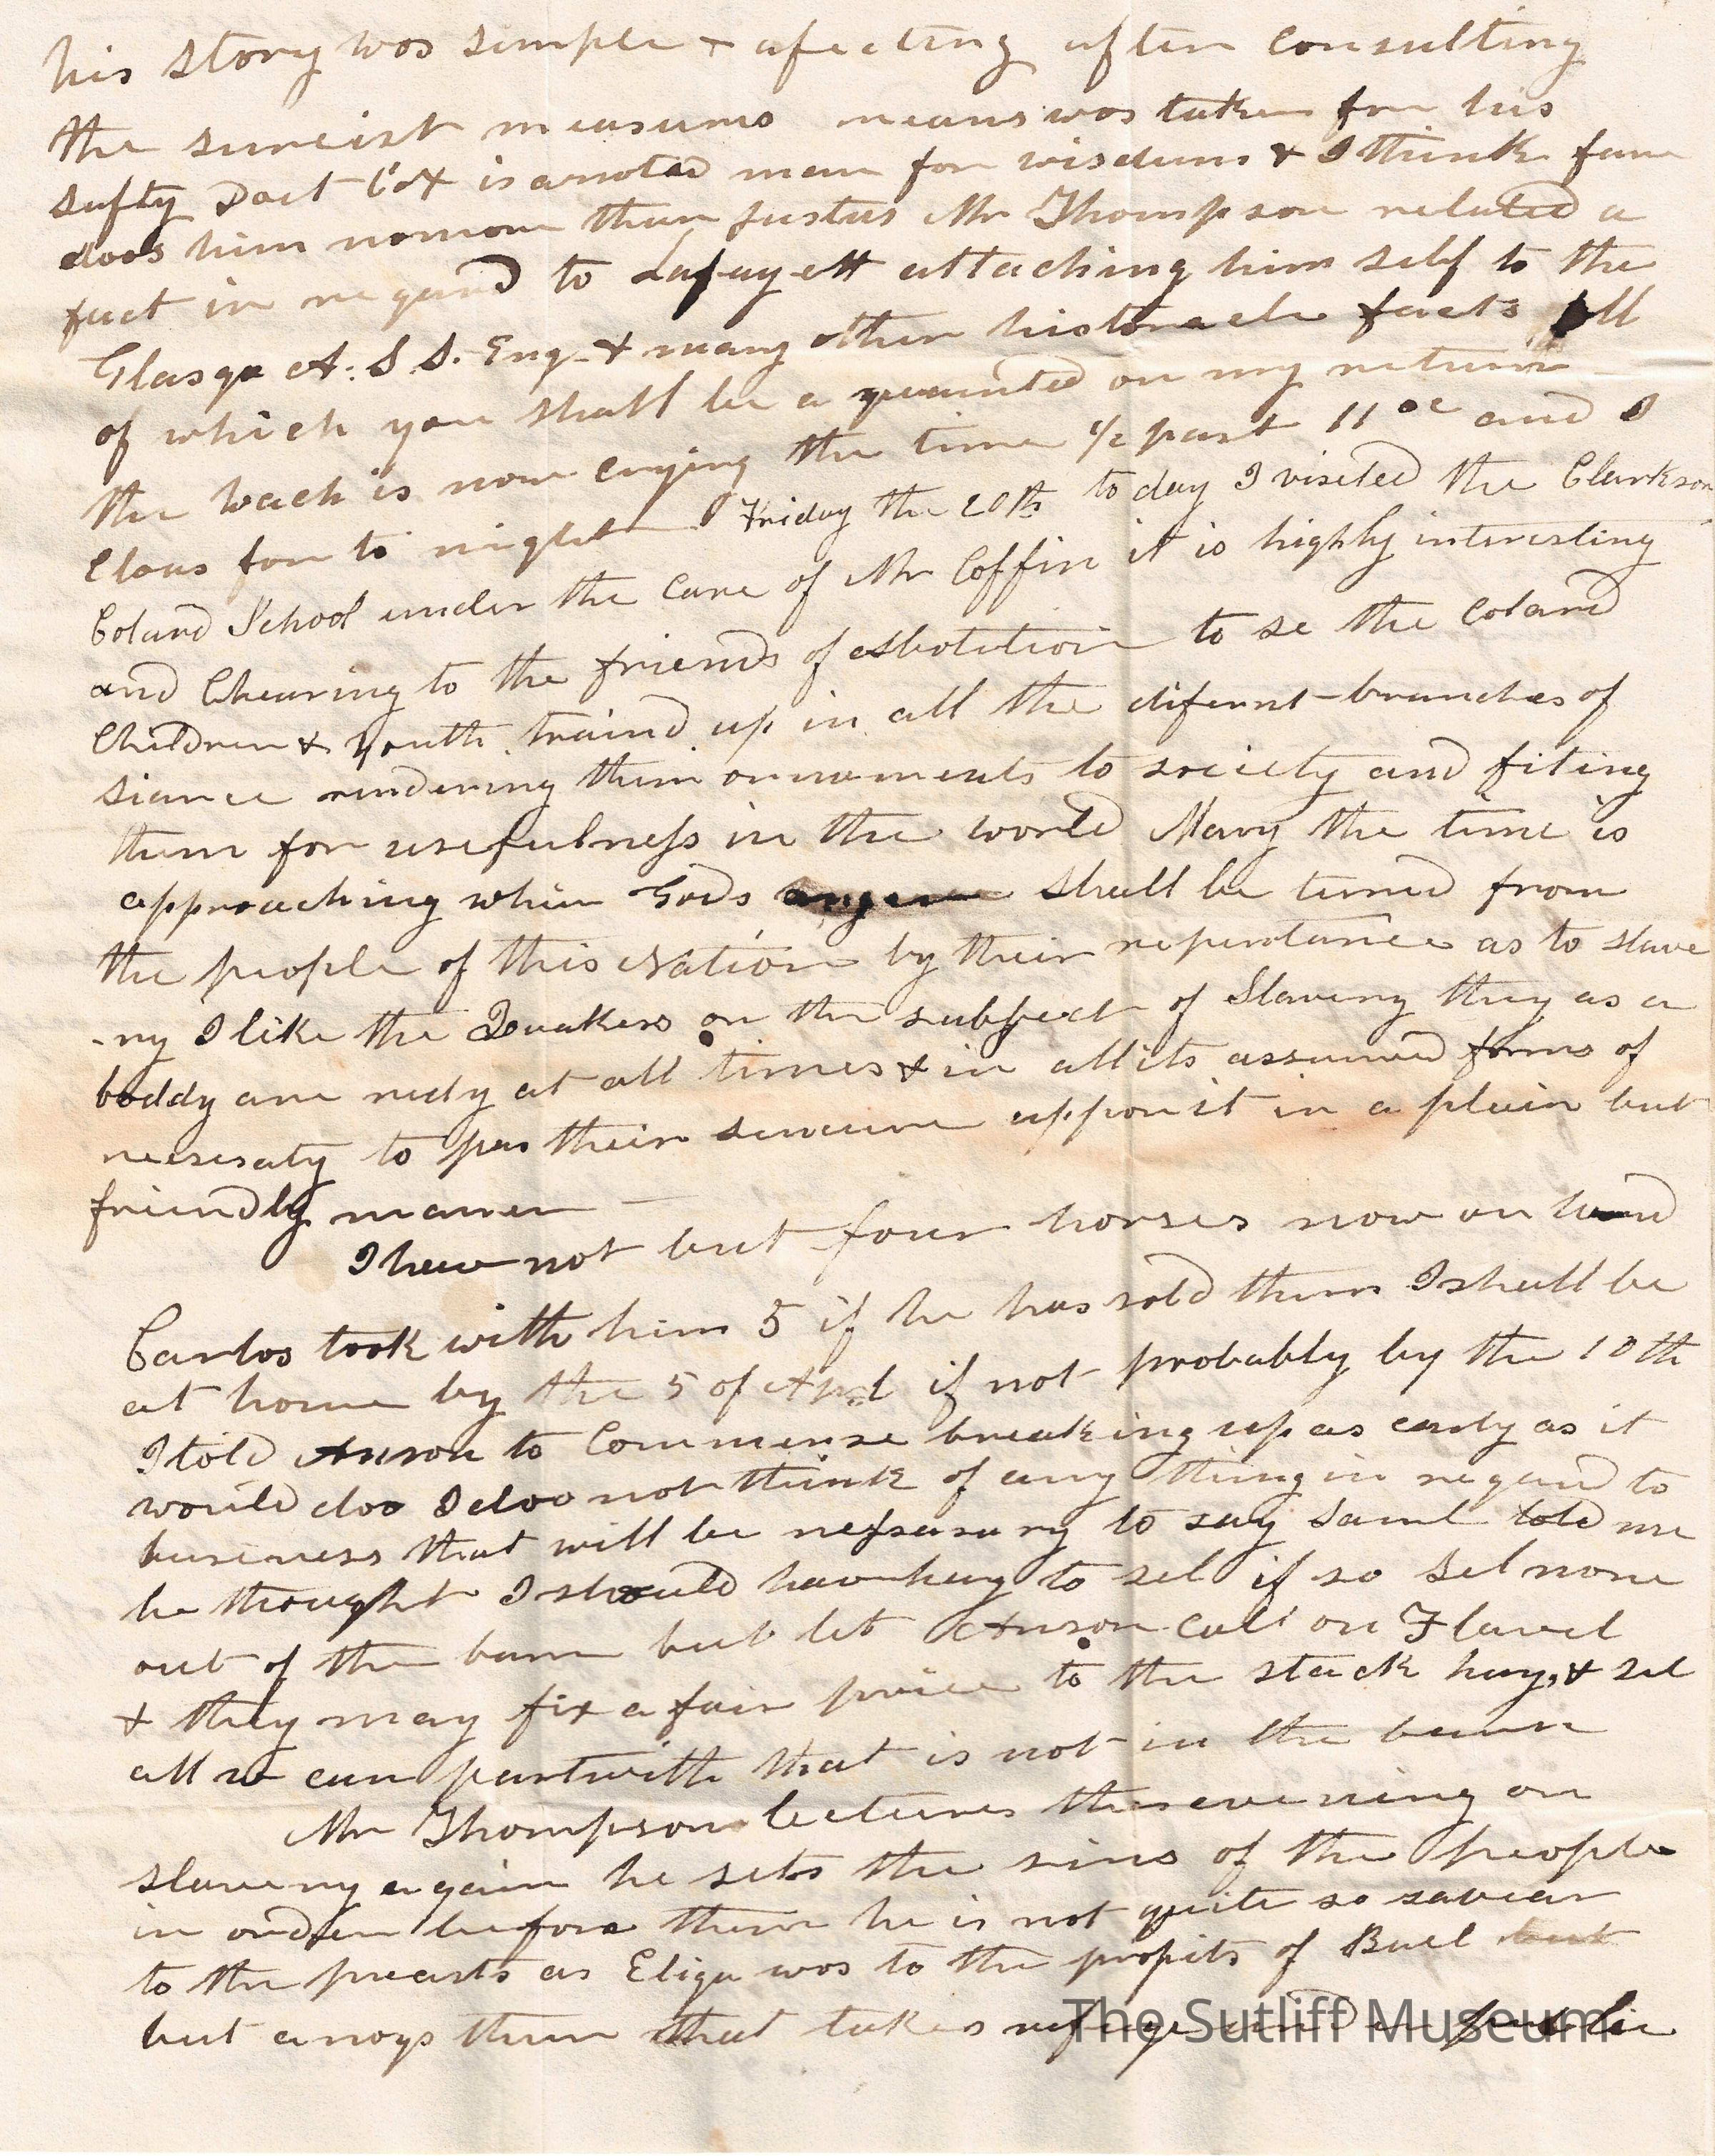 his story was simple & afecting after Consulting
the surcist measures means was taken for his
safty Doct Cox is a noted man for wisdum & I think fame
does him nomore than justus Mr Thompson related a
fact in regard to Lafayett attaching him self to the
Glasgo A. S. S. Eng. & many other historacle facts all
of which you shall be a quainted on my return
the wach is now crying the time ½ past 11 oc and I
Claus for to night Friday the 20th to day I visited the Clarkson
Colard School under the Care of Mr Coffin it is highly interesting
and Chearing to the friends of Abolition to se the Colard
Children & youth traind up in all the difernt branches of
siance rendering them ornaments to society and fiting
them for usefulness in the world May the time is
approaching when Gods anger shall be turned from
the people of this Nation by their repentance as to slave
-ry I like the Quakers on the subject of Slavery they as a
boddy are redy at all times & in all its assumed forms of
necsesaty to pas their sencure uppon it in a plain but
friendly maner
I have not but four horses now on hand
Carlos took with him 5 if he has sold them I shall be
at home by the 5 of Aprl if not probably by the 10th
I told Anson to Commense breaking up as early as it
would doo I doo not think of any thing in regard to
business that will be nessasary to say Saml told me
he thought I should hav hay to sel if so sel none
out of the barn but let Anson Call on Flavel
& they may fix a fair price to the stack hay, & sel
all w can part with that is not in the barn
Mr Thompson lectures this evening on
slavery again he sets the sins of the people
in order before them he is not quite so savear
to the preasts as Eliga was to the propits of Bael but
but anoys them that takes refuge
The Sutliff Museum